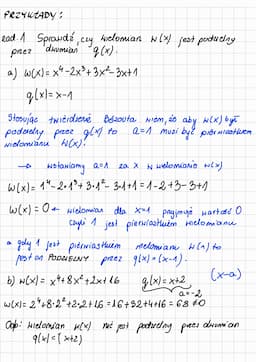 PRZYKŁADY:
zad.1 Sprawdź, czy wielomian W(x) jest podzielny
przez dwumian q(x).
a) W(x) = x⁴-2x³+3x²-3x+1
q(x) = x-1
Stosując twierdzenie Bézouta wiem, że aby W(x) był
podzielny przez q(x) to a=1 musi być pierwiastkiem
wielomianu W(x).
→ wstawiamy a=1 za x w wielomianie W(x)
W(x) = 1⁴-2·1³+3·1²-3·1+1 = 1-2+3-3+1
W(x) = 0 ← wielomian dla x=1 przyjmuje wartość 0
czyli 1 jest pierwiastkiem wielomianu
a gdy 1 jest pierwiastkiem wielomianu W(x) to
jest on PODZIELNY przez q(x) = (x-1).
b) W(x) = x⁴+8x²+2x+16 q(x) = x+2 (x-a)
a=-2
W(x) = 2⁴+8·2²+2·2+16 = 16+32+4+16 = 68 ≠0
Odp: Wielomian W(x) nie jest podzielny przez dwumian
q(x) = (x+2)